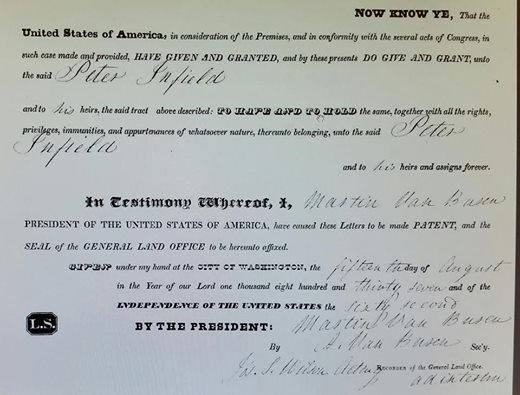 NOW KNOW YE, That the
United States of America, in consideration of the Premises, and in conformity with the several acts of Congress, in
such case made and provided, HAVE GIVEN AND GRANTED, and by these presents DO GIVE AND GRANT, unto
the said Peter Infield
and to his heirs, the said tract above described: TO HAVE AND TO HOLD the same, together with all the rights,
privileges, immunities, and appurtenances of whatsoever nature, thereunto belonging, unto the said Peter
Infield
and to his heirs and assigns forever.
In Testimony Whereof, I, Martin Van Buren
PRESIDENT OF THE UNITED STATES OF AMERICA, have caused these Letters to be made PATENT, and the
SEAL of the GENERAL LAND OFFICE to be hereunto affixed.
GIVEN under my hand at the CITY OF WASHINGTON, the fifteenth day of August
in the Year of our Lord one thousand eight hundred and thirty seven and of the
INDEPENDENCE OF THE UNITED STATES the sixty second
L.S.
BY THE PRESIDENT: Martin Van Buren
By A. Van Buren Sec'y.
Jos. S. Wilson Acting RECORDER of the General Land Office.
ad interim